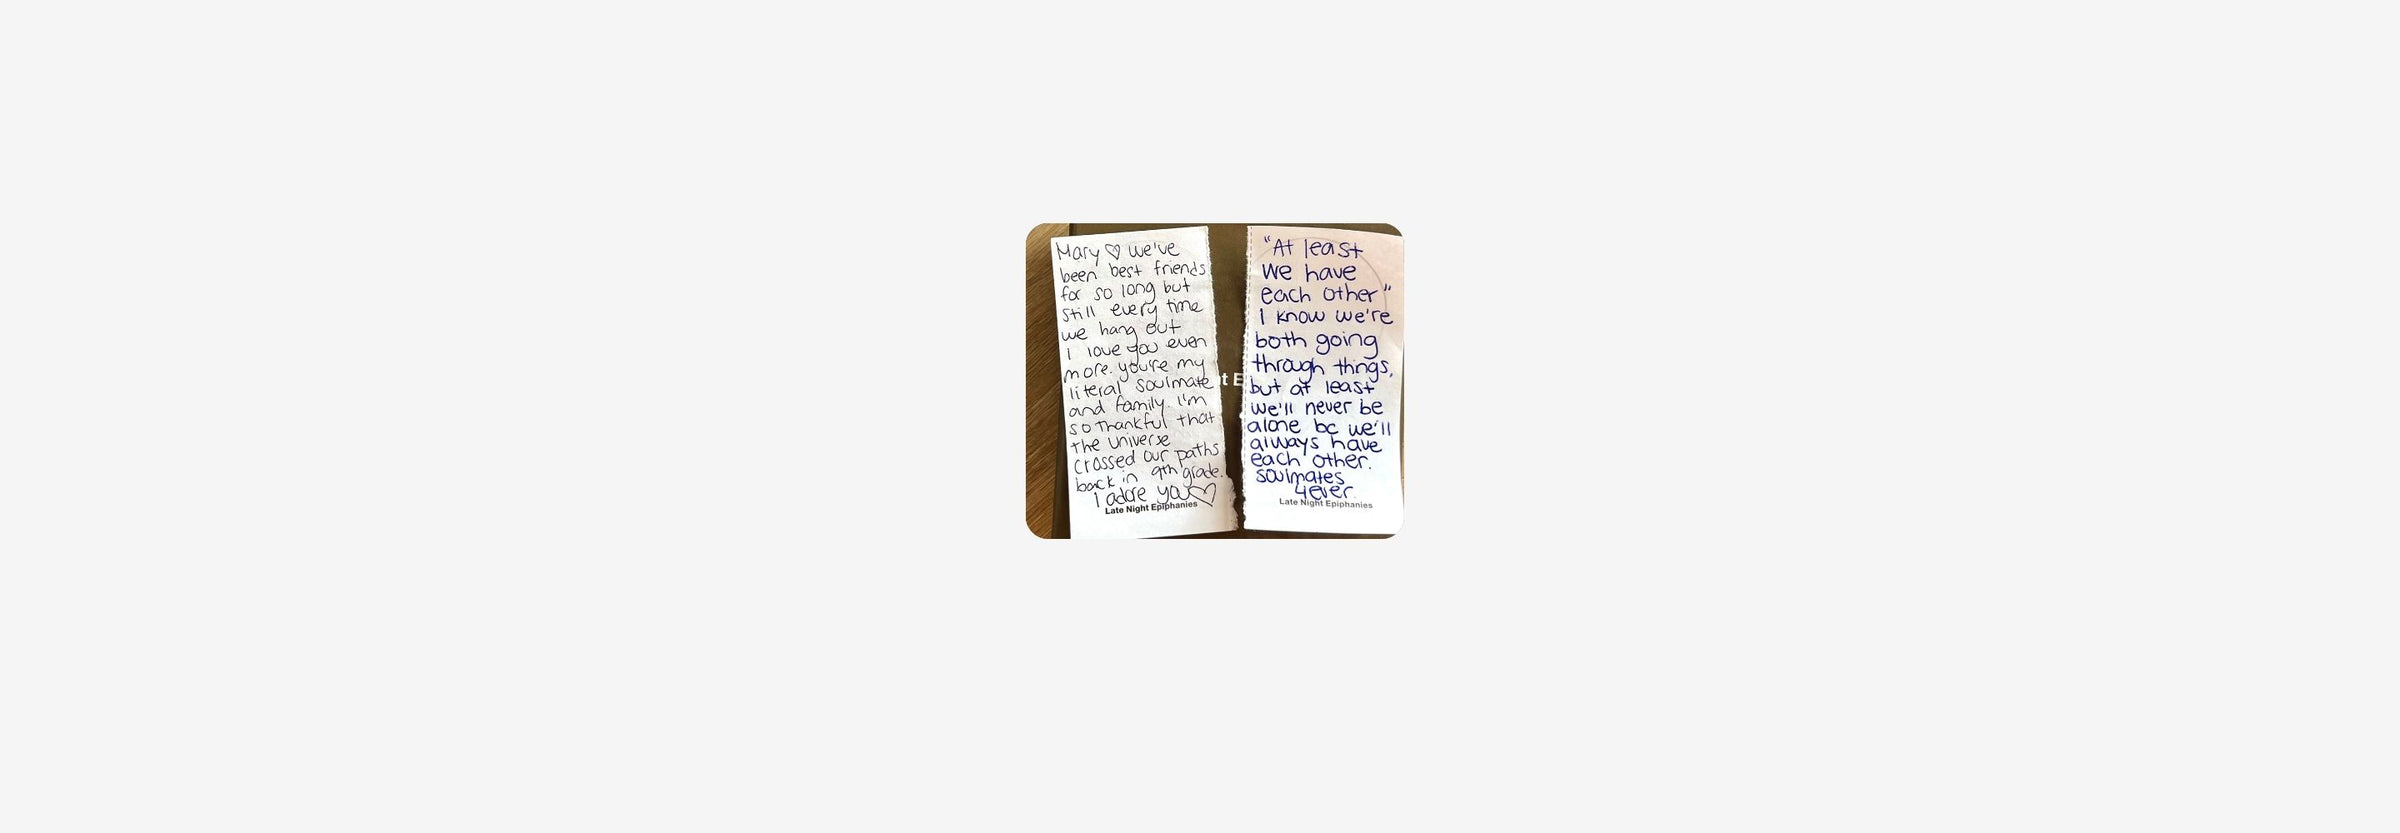 Mary ♡ we've
been best friends
for so long but
still every time
we hang out
I love you even
more. you're my
literal soulmate
and family. I'm
so thankful that
the universe
crossed our paths
back in 9th grade.
I adore you♡
Late Night Epiphanies
t E
"At least
we have
each other"
I know we're
both going
through things,
but at least
we'll never be
alone bc we'll
always have
each other.
soulmates
4ever.
Late Night Epiphanies